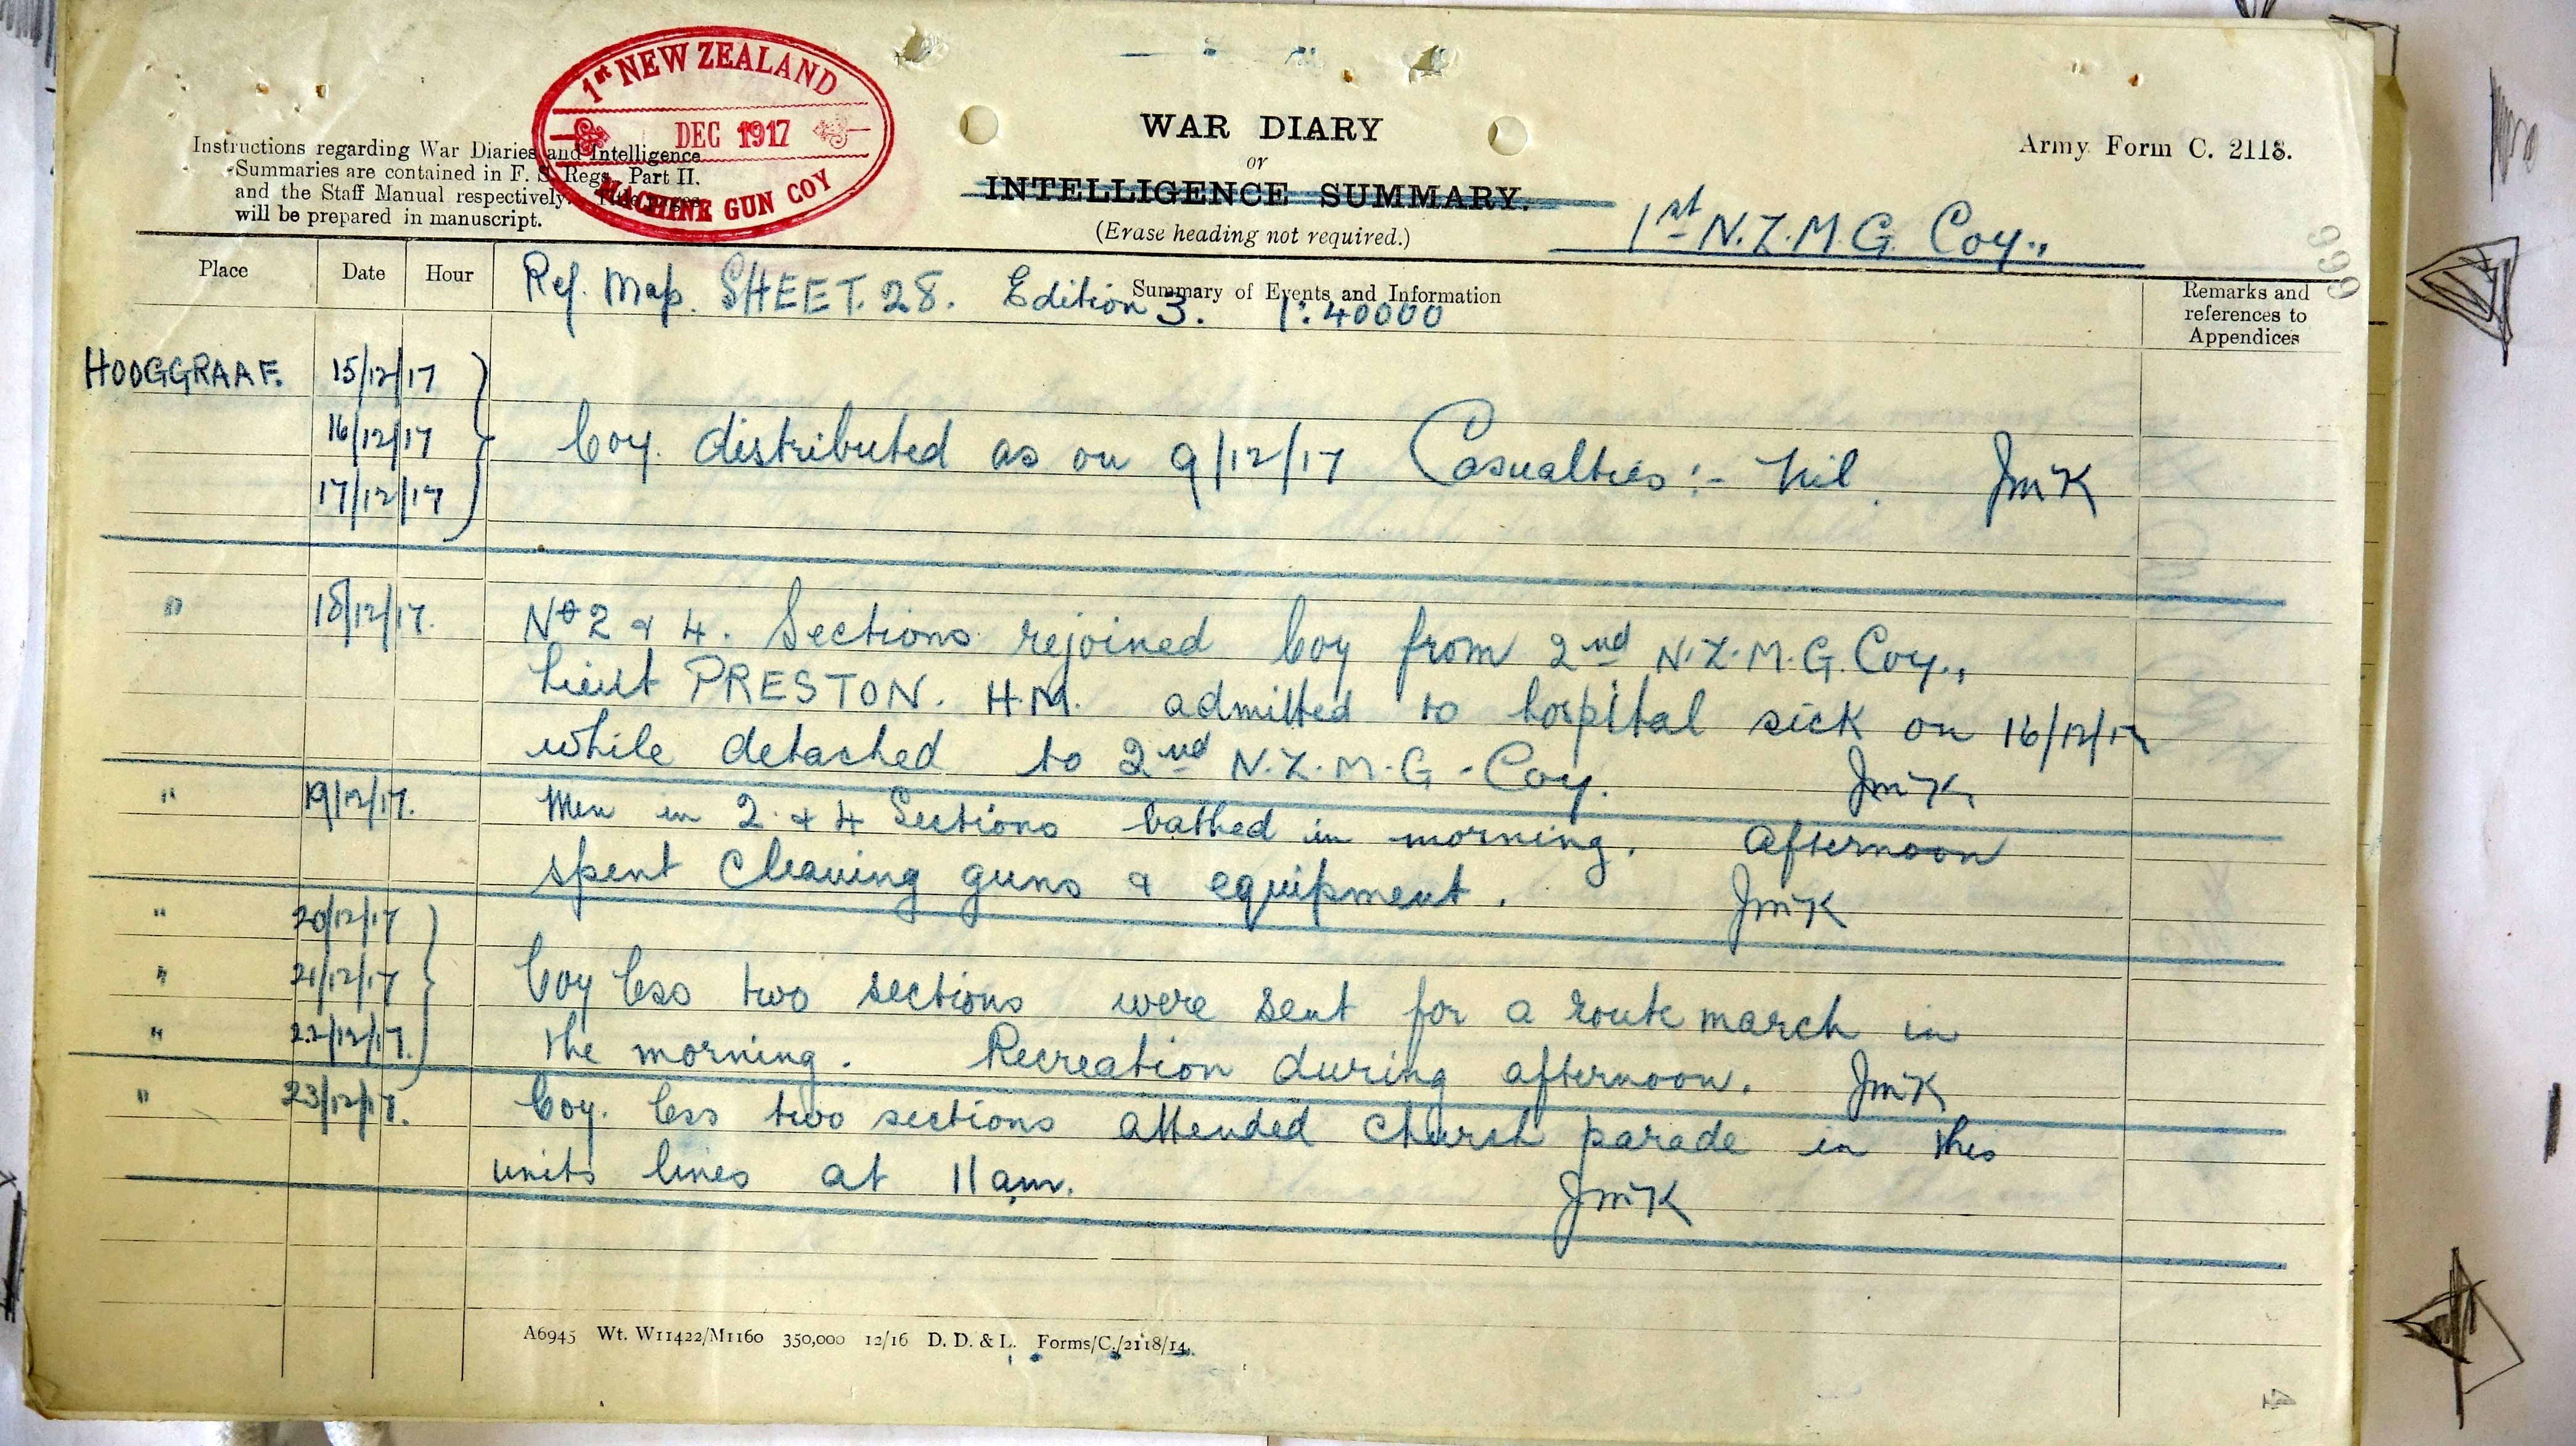 1st NEW ZEALAND
DEC 1917
MACHINE GUN COY
Instructions regarding War Diaries and Intelligence
Summaries are contained in F. S. Regs., Part II.
and the Staff Manual respectively. Title pages
will be prepared in manuscript.
WAR DIARY
or
INTELLIGENCE SUMMARY.
(Erase heading not required.)
Army Form C. 2118.
1st N.Z.M.G. Coy.,
999
Place Date Hour Summary of Events and Information Remarks and
references to
Appendices
Ref. Map. SHEET. 28. Edition 3. 1:40000
HOOGGRAAF. 15/12/17
16/12/17 Coy. distributed as on 9/12/17 Casualties :- Nil. JMcK
17/12/17
" 18/12/17. No 2 & 4. Sections rejoined Coy from 2nd N.Z.M.G. Coy.,
Lieut PRESTON. H.M. admitted to hospital sick on 16/12/17
while detached to 2nd N.Z.M.G. Coy. JMcK
" 19/12/17. Men in 2 & 4 Sections bathed in morning. Afternoon
spent cleaning guns & equipment. JMcK
" 20/12/17
" 21/12/17 Coy less two sections were sent for a route march in
" 22/12/17. the morning. Recreation during afternoon. JMcK
" 23/12/17. Coy. less two sections attended church parade in this
units lines at 11am. JMcK
A6945 Wt. W11422/M1160 350,000 12/16 D. D. & L. Forms/C./2118/14.
4